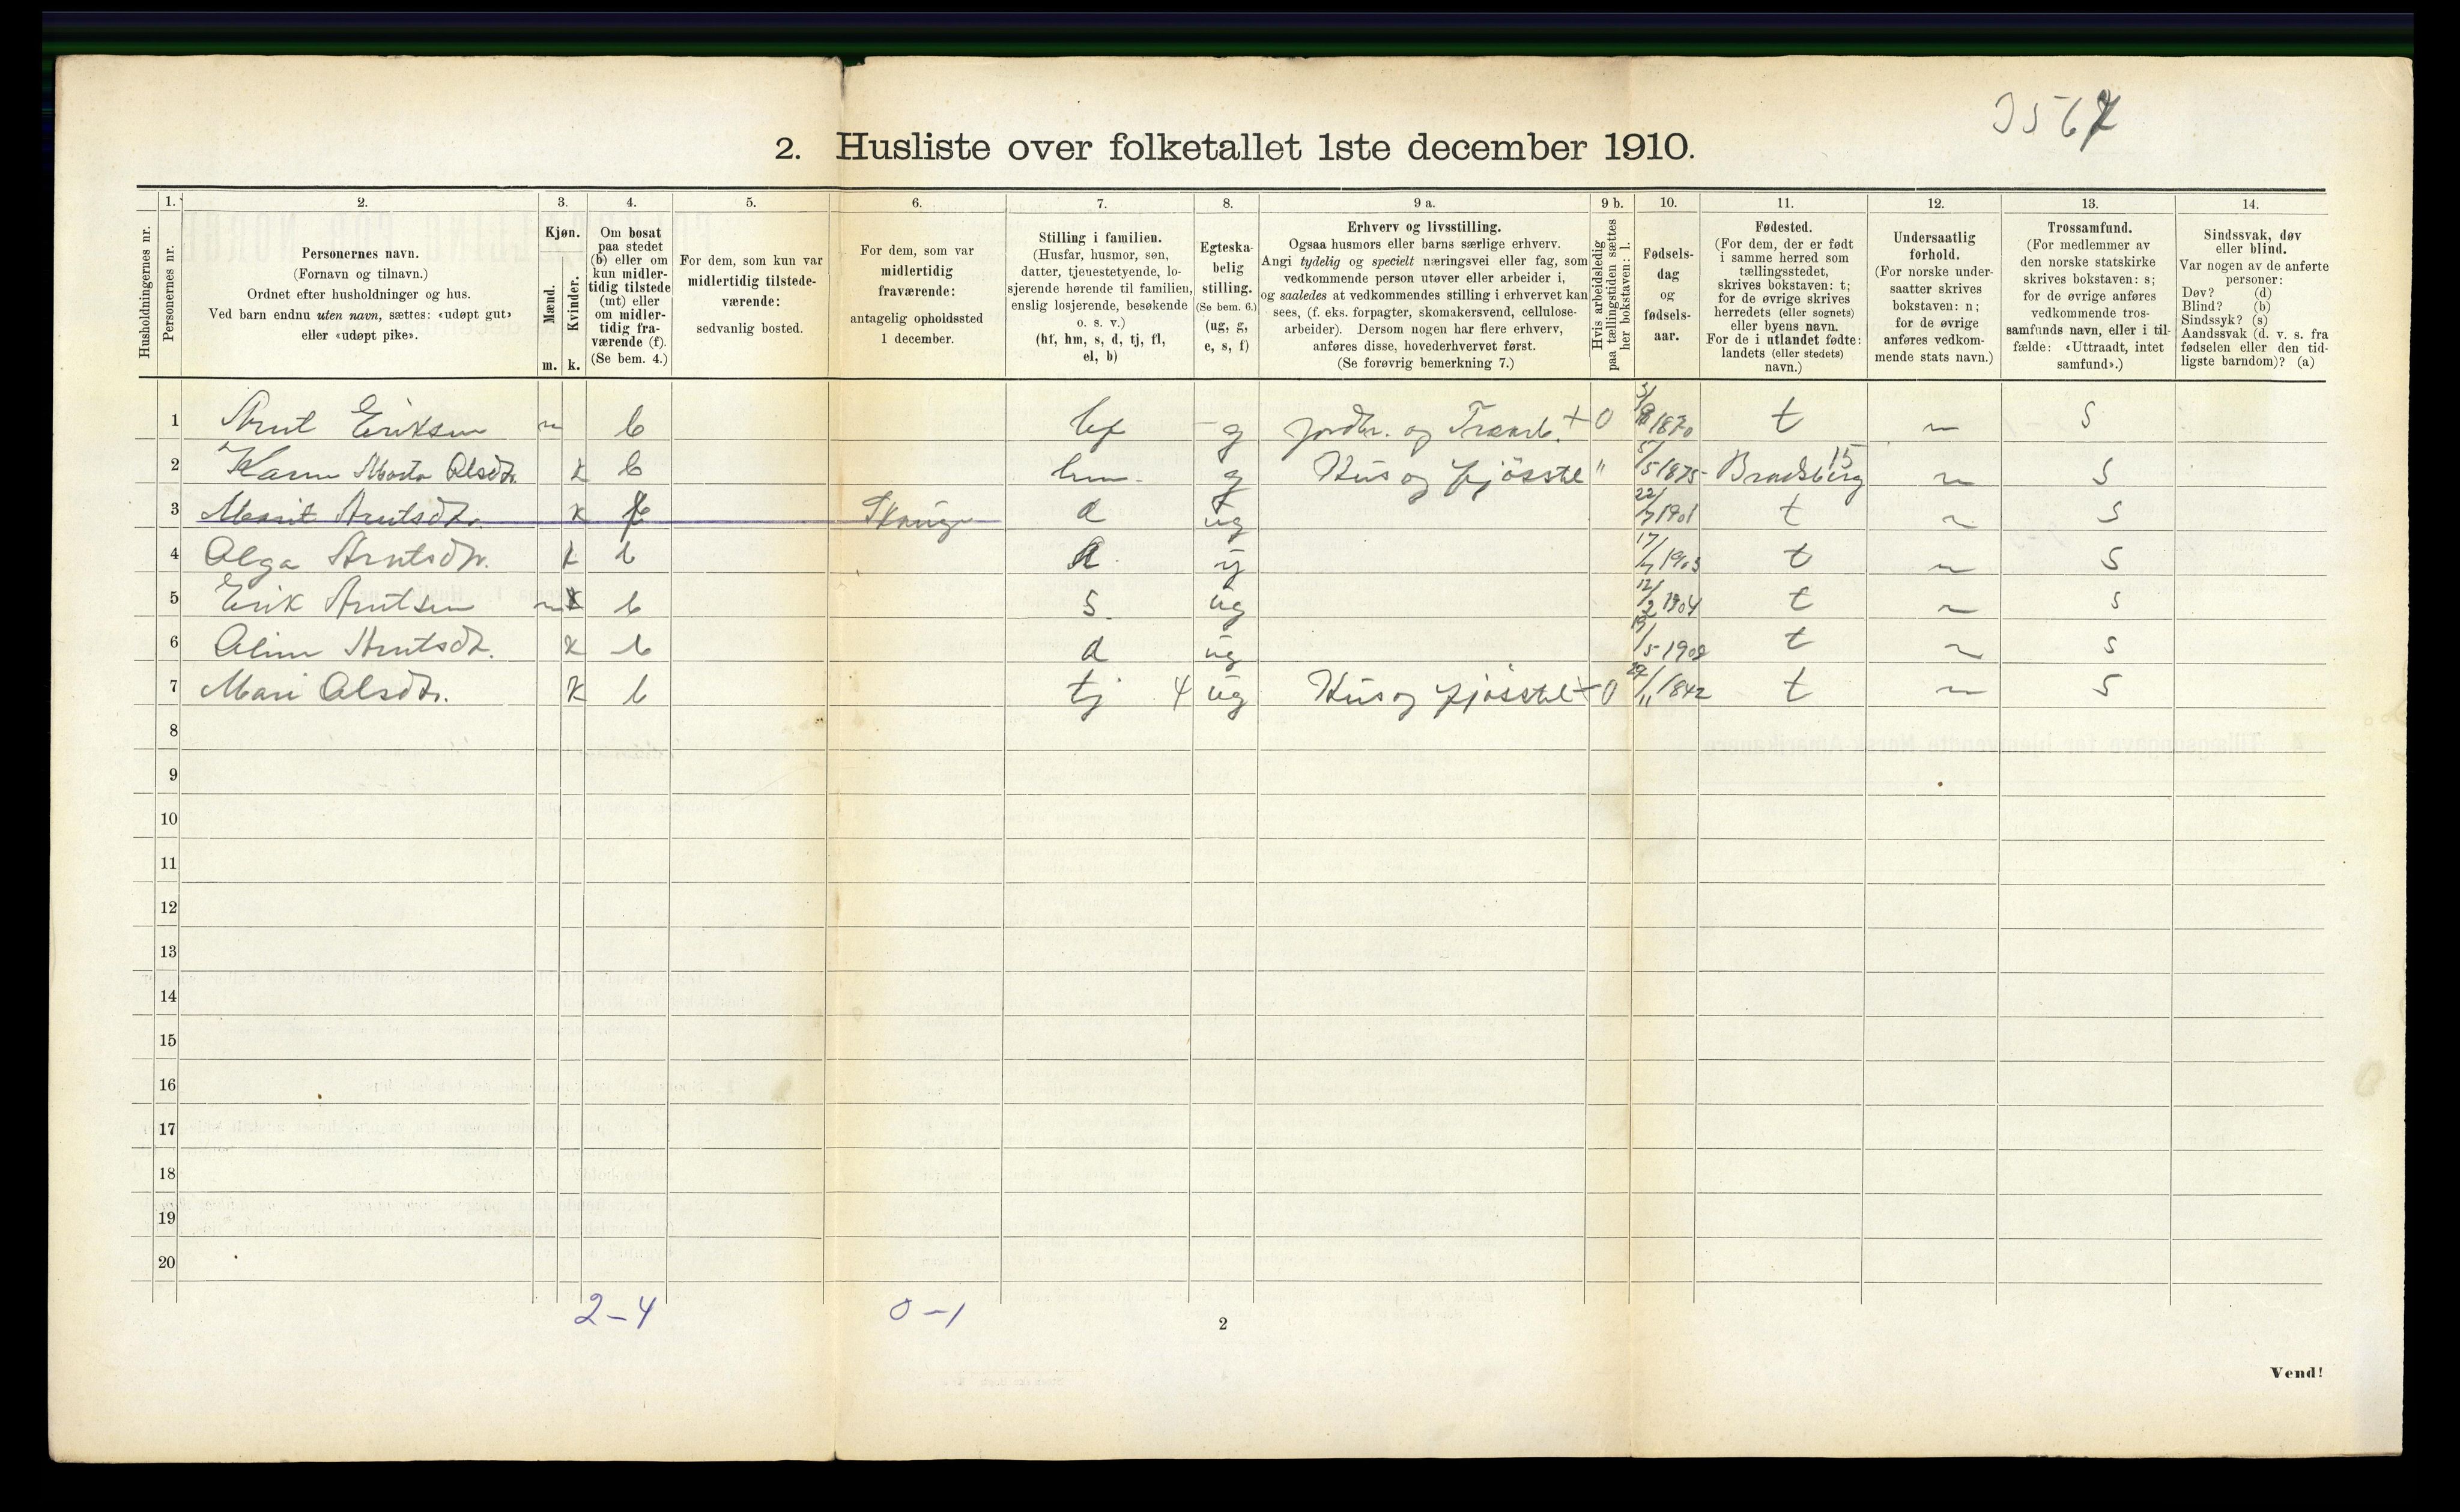 3567
2. Husliste over folketallet 1ste december 1910.
1. 2. 3. 4. 5. 6. 7. 8. 9 a. 9 b. 10. 11. 12. 13. 14.
Husholdningernes nr.
Personernes nr.
Personernes navn.
(Fornavn og tilnavn.)
Ordnet efter husholdninger og hus.
Ved barn endnu uten navn, sættes: «udøpt gut»
eller «udøpt pike».
Kjøn.
Mænd.
Kvinder.
m. k.
Om bosat
paa stedet
(b) eller om
kun midler-
tidig tilstede
(mt) eller
om midler-
tidig fra-
værende (f).
(Se bem. 4.)
For dem, som kun var
midlertidig tilstede-
værende:
sedvanlig bosted.
For dem, som var
midlertidig
fraværende:
antagelig opholdssted
1 december.
Stilling i familien.
(Husfar, husmor, søn,
datter, tjenestetyende, lo-
sjerende hørende til familien,
enslig losjerende, besøkende
o. s. v.)
(hf, hm, s, d, tj, fl,
el, b)
Egteska-
belig
stilling.
(Se bem. 6.)
(ug, g,
e, s, f)
Erhverv og livsstilling.
Ogsaa husmors eller barns særlige erhverv.
Angi tydelig og specielt næringsvei eller fag, som
vedkommende person utøver eller arbeider i,
og saaledes at vedkommendes stilling i erhvervet kan
sees, (f. eks. forpagter, skomakersvend, cellulose-
arbeider). Dersom nogen har flere erhverv,
anføres disse, hovederhvervet først.
(Se forøvrig bemerkning 7.)
Hvis arbeidsledig
paa tællingstiden sættes
her bokstaven: l.
Fødsels-
dag
og
fødsels-
aar.
Fødested.
(For dem, der er født
i samme herred som
tællingsstedet,
skrives bokstaven: t;
for de øvrige skrives
herredets (eller sognets)
eller byens navn.
For de i utlandet fødte:
landets (eller stedets)
navn.)
Undersaatlig
forhold.
(For norske under-
saatter skrives
bokstaven: n;
for de øvrige
anføres vedkom-
mende stats navn.)
Trossamfund.
(For medlemmer av
den norske statskirke
skrives bokstaven: s;
for de øvrige anføres
vedkommende tros-
samfunds navn, eller i til-
fælde: «Uttraadt, intet
samfund».)
Sindssvak, døv
eller blind.
Var nogen av de anførte
personer:
Døv? (d)
Blind? (b)
Sindssyk? (s)
Aandssvak (d. v. s. fra
fødselen eller den tid-
ligste barndom)? (a)
1 Arnt Eriksen m b hf g jordbr. og + 0 1870 t n S
2 Karen Marta Olsdtr. k b hm. g Hus og fjösstel " 5/5 1875 Bradsberg 15 n S
3 Marit Arntsdtr. k f d ug 22/7 1901 t n S
4 Olga Arntsdtr. k b d ug 17/7 1903 t n S
5 Erik Arntsen m b s. ug 12/2 1904 t n S
6 Arntsdtr. k b d ug /5 1908 t n S
7 Mari Olsdtr. k b tj 4 ug Hus og fjösstel + 0 /11 1842 t n S
8
9
10
11
12
13
14
15
16
17
18
19
20
2-4 0-1
2
Vend!